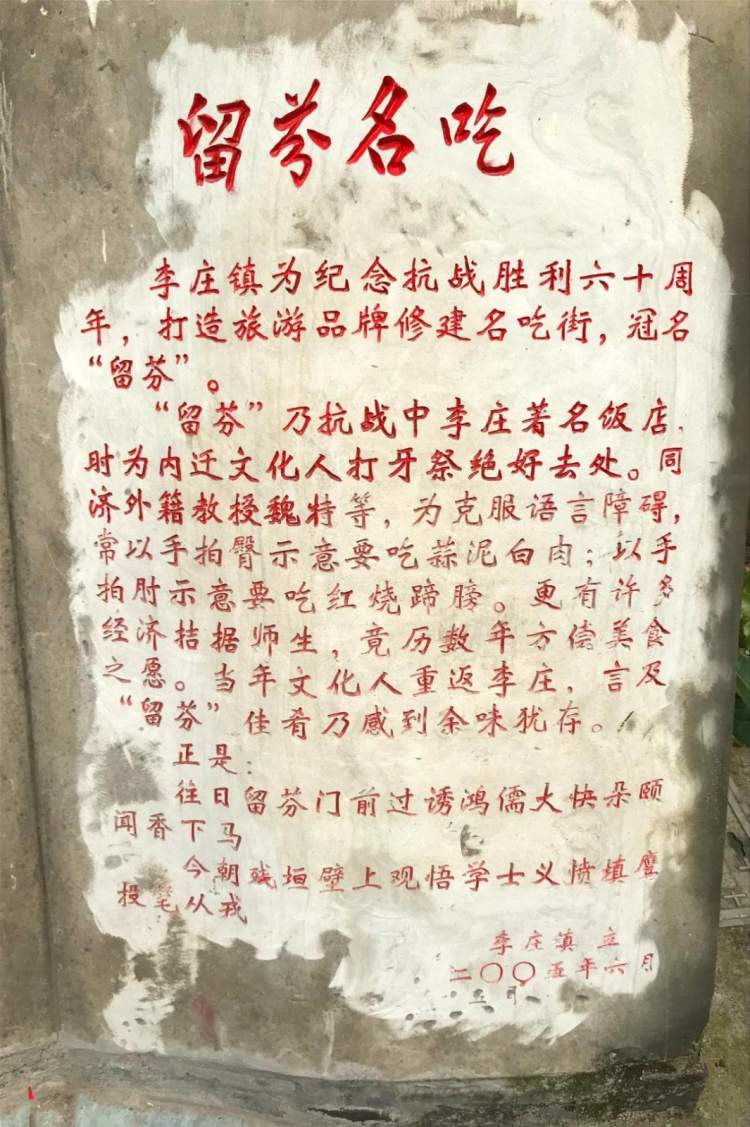 留芬名吃
李庄镇为纪念抗战胜利六十周
年，打造旅游品牌修建名吃街，冠名
“留芬”。
“留芬”乃抗战中李庄著名饭店，
时为内迁文化人打牙祭绝好去处。同
济外籍教授魏特等，为克服语言障碍，
常以手拍臀示意要吃蒜泥白肉；以手
拍肘示意要吃红烧蹄膀。更有许多
经济拮据师生，竟历数年方偿美食
之愿。当年文化人重返李庄，言及
“留芬”佳肴乃感到余味犹存。
正是：
往日留芬门前过诱鸿儒大快朵颐
闻香下马
今朝残垣壁上观悟学士义愤填膺
投笔从戎
李庄镇 立
二〇〇五年六月